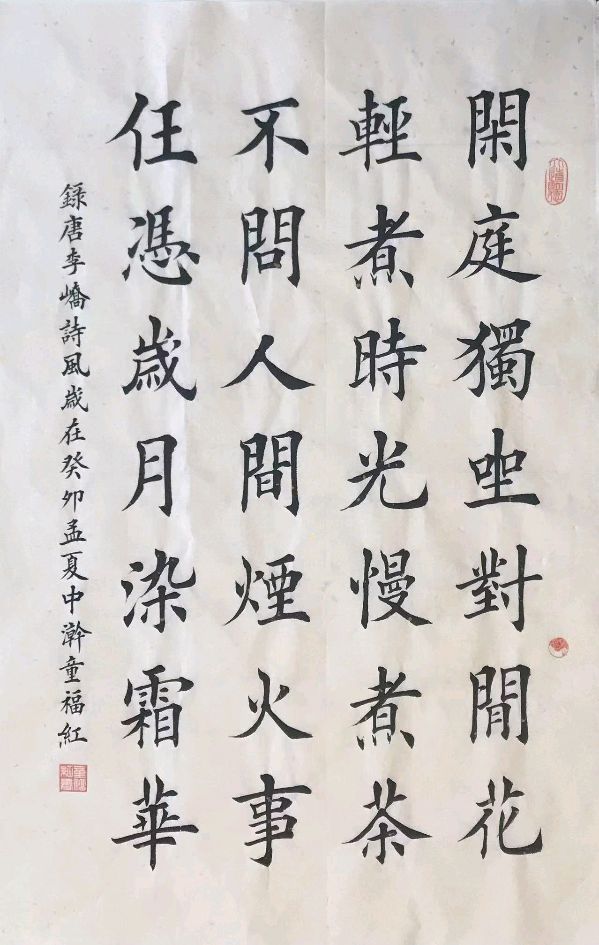 閑庭獨坐對閒花
輕煮時光慢煮茶
不問人間煙火事
任憑歲月染霜華
錄唐李嶠詩風歲在癸卯孟夏中澣童福紅